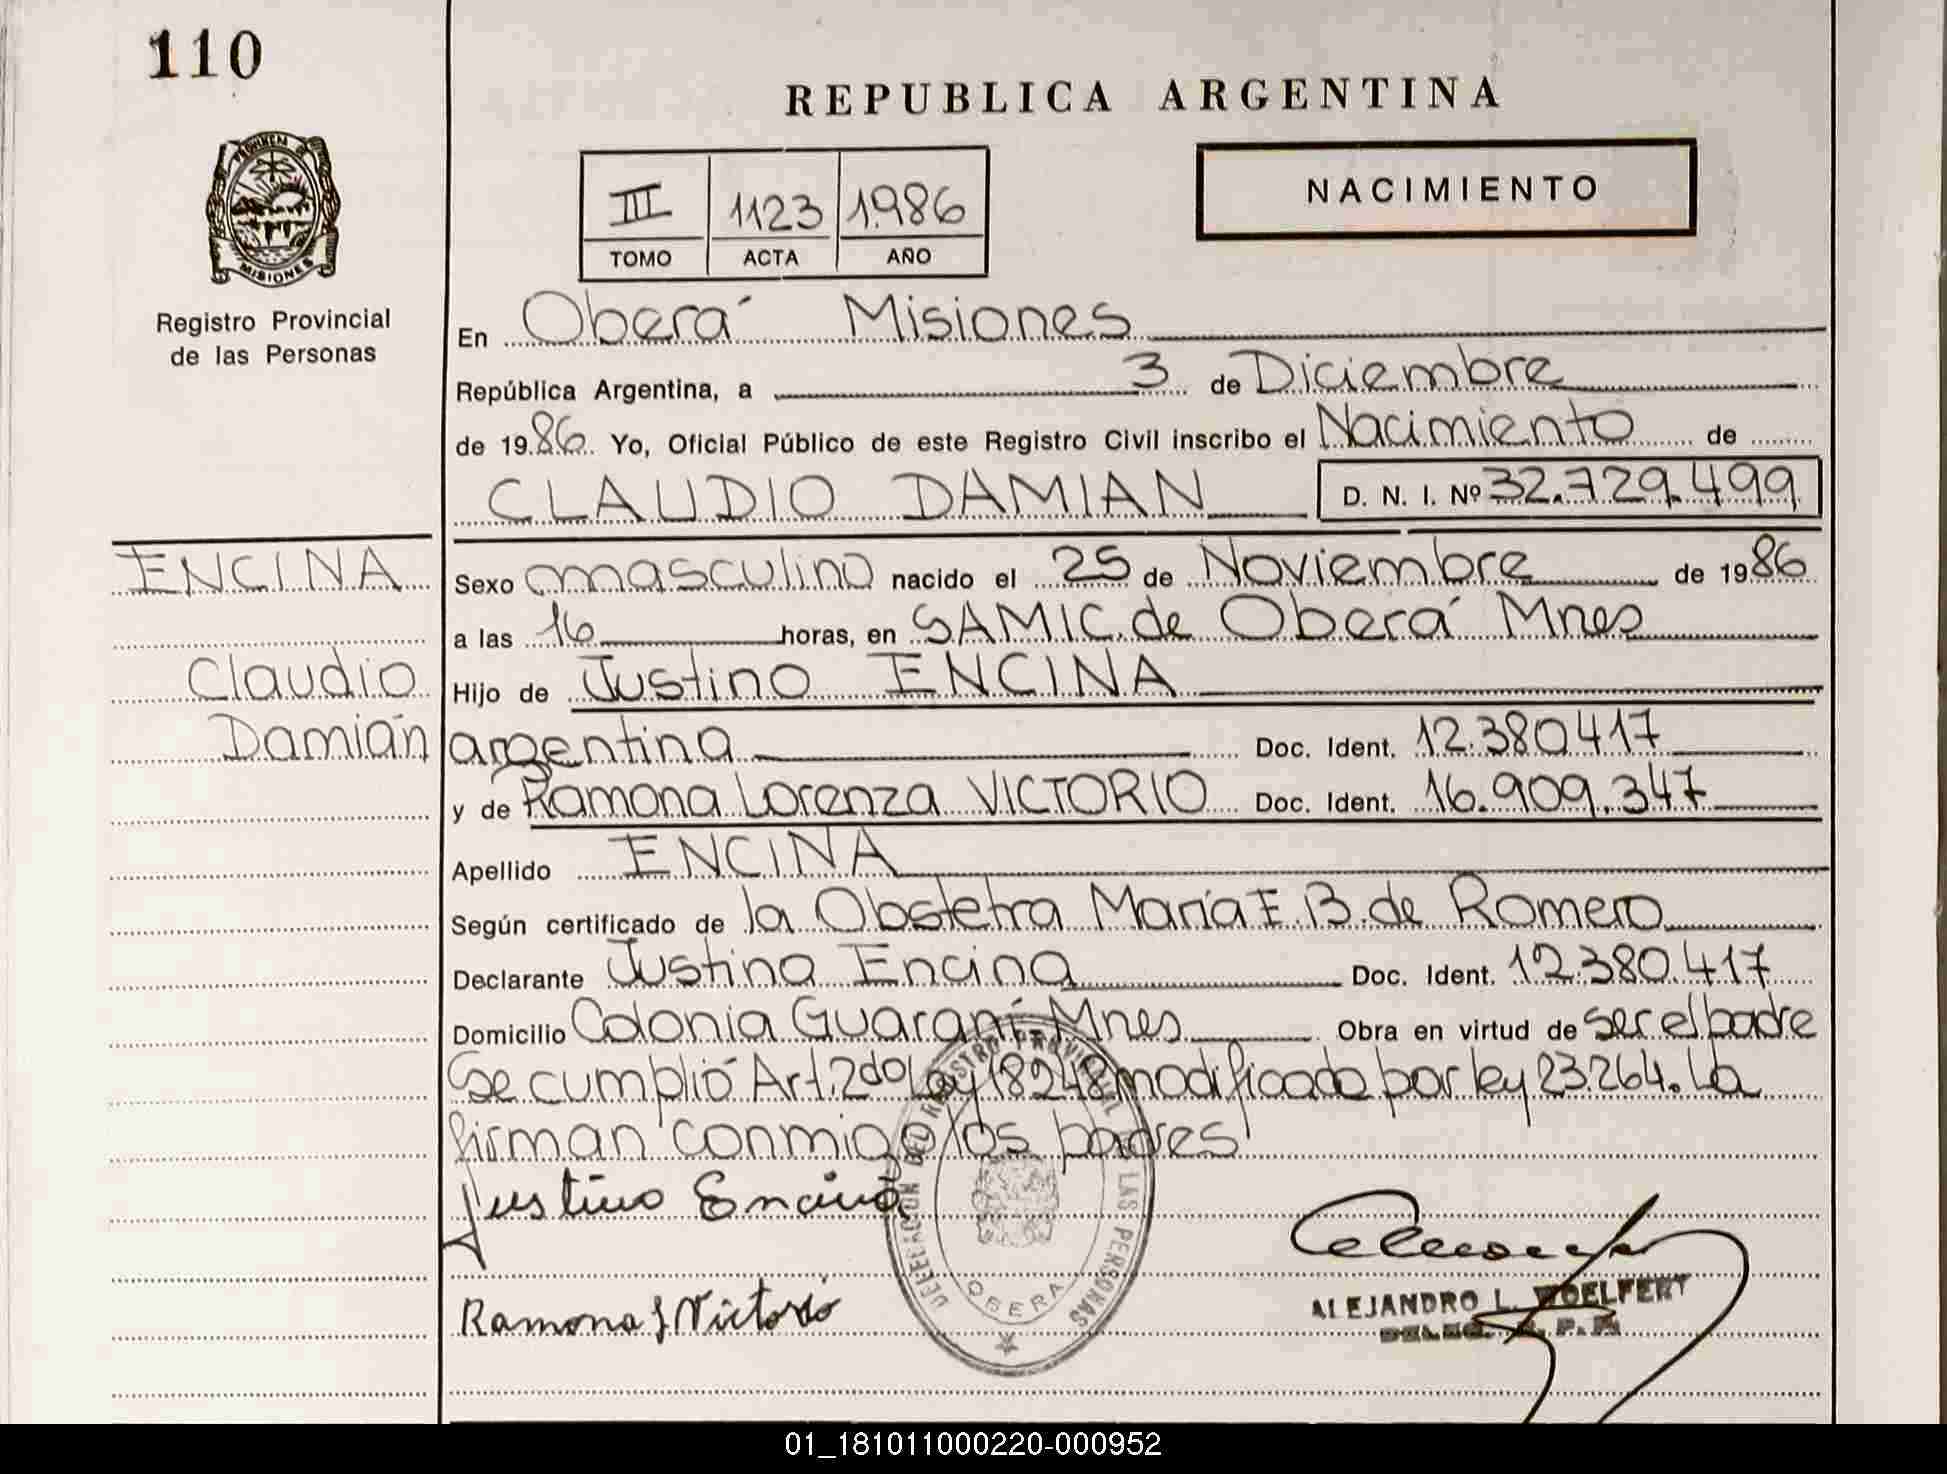 110
REPUBLICA ARGENTINA
PROVINCIA DE
MISIONES
III 1123 1.986
TOMO ACTA AÑO
NACIMIENTO
Registro Provincial
de las Personas
En Oberá Misiones
República Argentina, a 3 de Diciembre
de 1986. Yo, Oficial Público de este Registro Civil inscribo el Nacimiento de
CLAUDIO DAMIAN D. N. I. Nº 32.729.499
ENCINA
Claudio
Damián
Sexo masculino nacido el 25 de Noviembre de 1986
a las 16 horas, en SAMIC. de Oberá Mnes
Hijo de Justino ENCINA
argentina Doc. Ident. 12.380417
y de Ramona Lorenza VICTORIO Doc. Ident. 16.909.347
Apellido ENCINA
Según certificado de la Obstetra María E. B. de Romero
Declarante Justino Encina Doc. Ident. 12.380.417
Domicilio Colonia Guaraní Mnes Obra en virtud de ser el padre
Se cumplió Art. 2do Ley 18248 modificado por ley 23.264. La
firman conmigo los padres
Justino Encina
Ramona L Victorio
DELEGACION DEL REGISTRO PROVINCIAL DE LAS PERSONAS
OBERA
ALEJANDRO L. WOELFERT
DELEG. R. P. P.
01_181011000220-000952